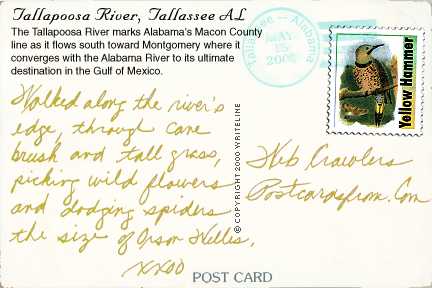 Tallapoosa River, Tallassee AL
The Tallapoosa River marks Alabama's Macon County
line as it flows south toward Montgomery where it
converges with the Alabama River to its ultimate
destination in the Gulf of Mexico.
Walked along the river's
edge, through cane
brush and tall grass,
picking wild flowers
and dodging spiders
the size of Orson Welles.
xxoo
POST CARD
© COPYRIGHT 2000 WRITELINE
Tallassee - Alabama
MAY
15
2000
Yellow Hammer
Web Crawlers
Postcardsfrom.Com